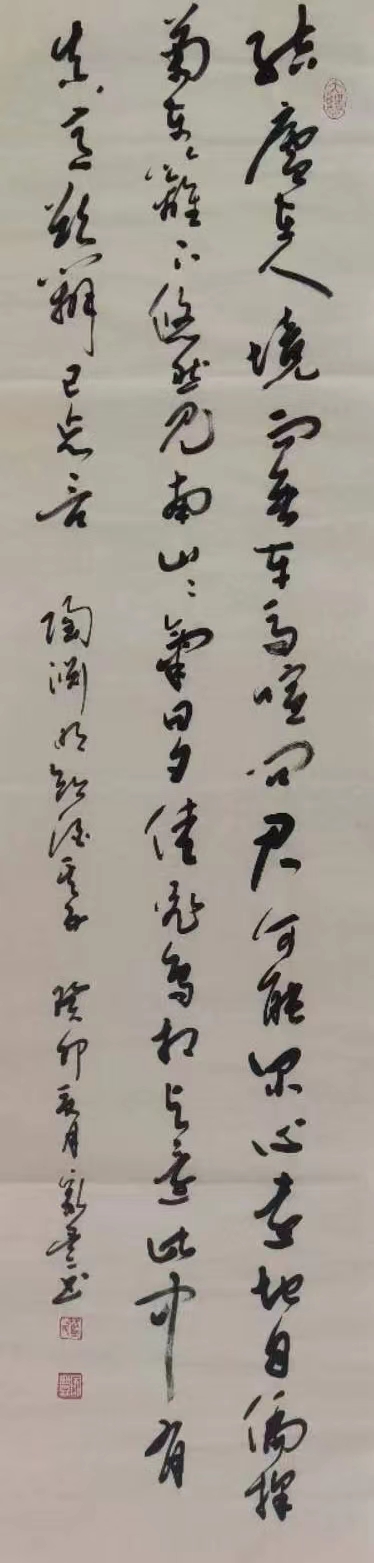 結廬在人境而無車馬喧問君何能尔心遠地自偏採
菊東籬下悠然見南山〻氣日夕佳飛鳥相与還此中有
真意欲辯已忘言 陶渊明飲酒其五 癸卯夏月 書